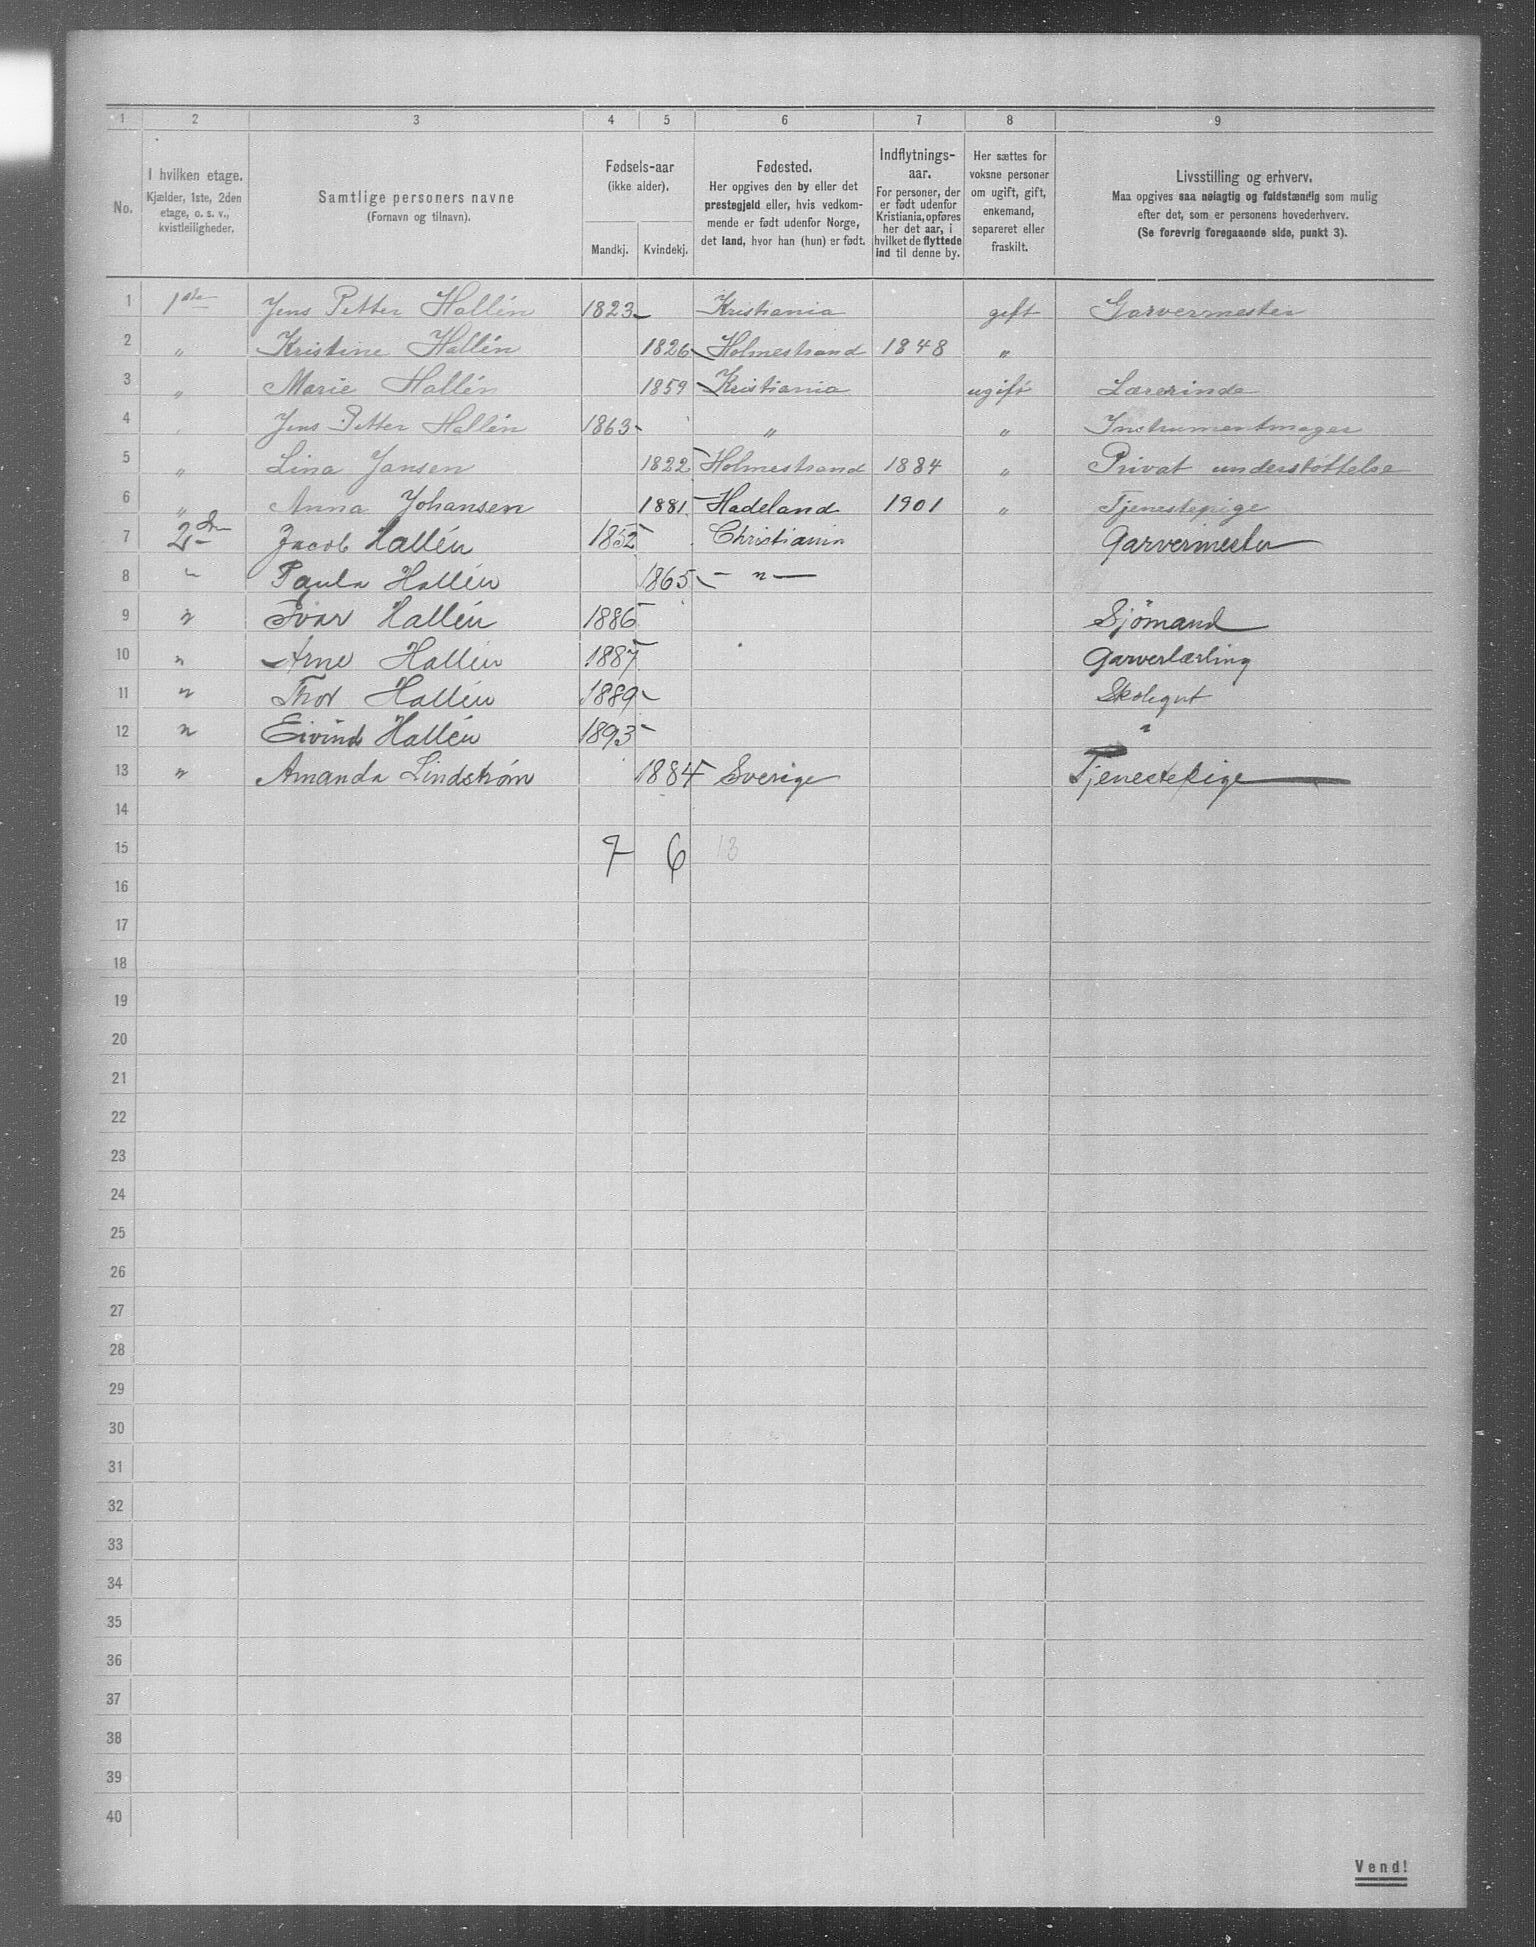 1 2 3 4 5 6 7 8 9
No.
I hvilken etage.
Kjælder, 1ste, 2den
etage, o. s. v.,
kvistleiligheder.
Samtlige personers navne
(Fornavn og tilnavn).
Fødsels-aar
(ikke alder).
Mandkj. Kvindekj.
Fødested.
Her opgives den by eller det
prestegjeld eller, hvis vedkom-
mende er født udenfor Norge,
det land, hvor han (hun) er født.
Indflytnings-
aar.
For personer, der
er født udenfor
Kristiania, opføres
her det aar, i
hvilket de flyttede
ind til denne by.
Her sættes for
voksne personer
om ugift, gift,
enkemand,
separeret eller
fraskilt.
Livsstilling og erhverv.
Maa opgives saa nøiagtig og fuldstændig som mulig
efter det, som er personens hovederhverv.
(Se forøvrig foregaaende side, punkt 3).
1 1ste Jens Petter Hallén 1823 Kristiania gift Garvermester
2 " Kristine Hallén 1826 Holmestrand 1848 "
3 " Marie Hallén 1859 Kristiania ugift Lærerinde
4 " Jens Petter Hallén 1863 " " Instrumentmager
5 " Lina Jansen 1822 Holmestrand 1884 " Privat understøttelse
6 " Anna Johansen 1881 Hadeland 1901 " Tjenestepige
7 2den Jacob Hallén 1852 Christiania Garvermester
8 " Paula Hallén 1865 — " —
9 " Ivar Hallén 1886 Sjömand
10 " Arne Hallén 1887 Garverlærling
11 " Thor Hallén 1889 Skolegut
12 " Eivind Hallén 1893 "
13 " Amanda Lindstrøm 1884 Sverige Tjenestepige
14
15 7 6 13
16
17
18
19
20
21
22
23
24
25
26
27
28
29
30
31
32
33
34
35
36
37
38
39
40
Vend!